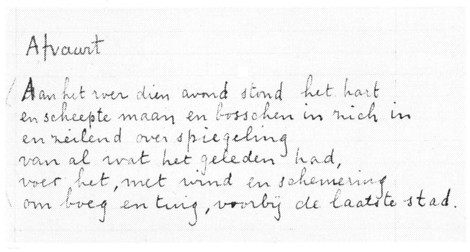 Afvaart
Aan het veer dien avond stond het hart
en scheepte maan en bosschen in zich in
en zeilend over spiegeling
van al wat het geleden had,
voer het, met wind en schemering
om boeg en tuig, voorbij de laatste stad.